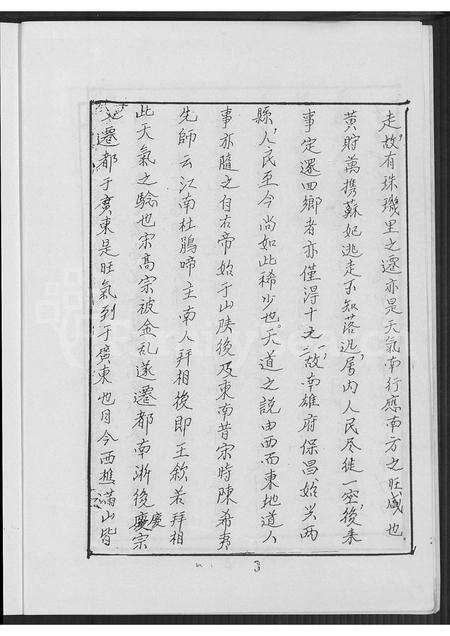 走故有珠璣里之遷亦是天氣南行應南方之旺盛也
黃貯萬携蘇妃逃走不知落逃屬内人民尽徙一空後来
事定還四鄉者亦僅淂十之一二故南雄府保昌始兴两
縣人民至今尚如此稀少也天道之説由西而東地道人
事亦隨之自古帝始于山陝後及東南昔宋時陳希夷
先師云江南杜鵑啼主南人拜相後即王欽若拜相
此天氣之驗也宋高宗被金乱遂遷都南淅後慶宗
又遷都于廣東是旺氣到于廣東也月今西樵滿山皆
3